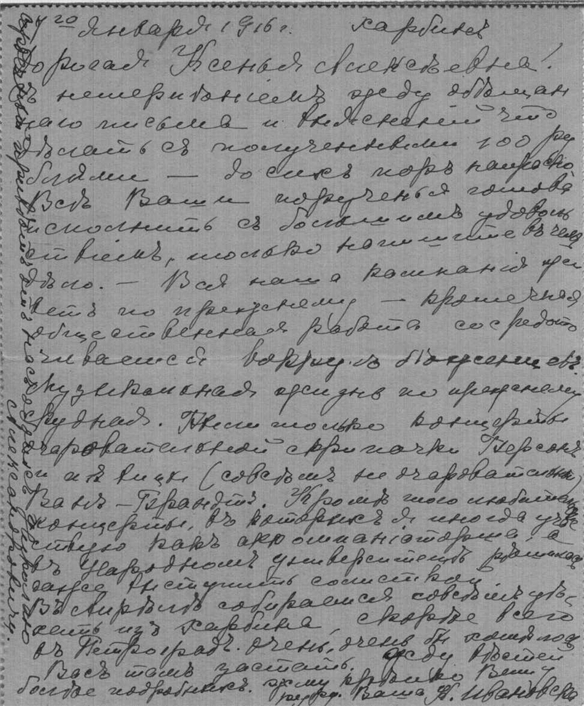 4го Января 1916г. Харбинъ
Дорогая Ксенья Алексѣевна!
Съ нетерпѣніемъ жду обѣщан
наго письма и выясненій что
дѣлать съ полученными 100 ру
блями — до сихъ поръ напрасно
Всѣ Ваши порученья готова
исполнить съ большимъ удоволь
ствіемъ, только напишите въ чемъ
дѣло. — Вся наша компанія жи
ветъ по прежнему — кромечная
общественная работа сосредото
чивается вокругъ бѣженцевъ
музыкальная жизнь по прежнему
скудная. Были только концерты
очаровательной скрипачки
и пѣвицы (совсѣмъ не очаровательн)
Ванъ-Брандтъ. Кромѣ того любительск
концерты, въ которыхъ я иногда уча
ствую какъ аккомпаніаторша, а
въ Народномъ университетѣ рѣшилась
даже выступить солисткой.
Въ Апрѣлѣ собираемся совсѣмъ уѣ-
хать изъ Харбина, скорѣе всего
въ Петроградъ. Очень, очень бы хотѣлось
Васъ тамъ застать. Жду вѣстей
болѣе подробныхъ. Жму крѣпко Вашу
руку. Ваша Н. Ивановска
Александровичу.